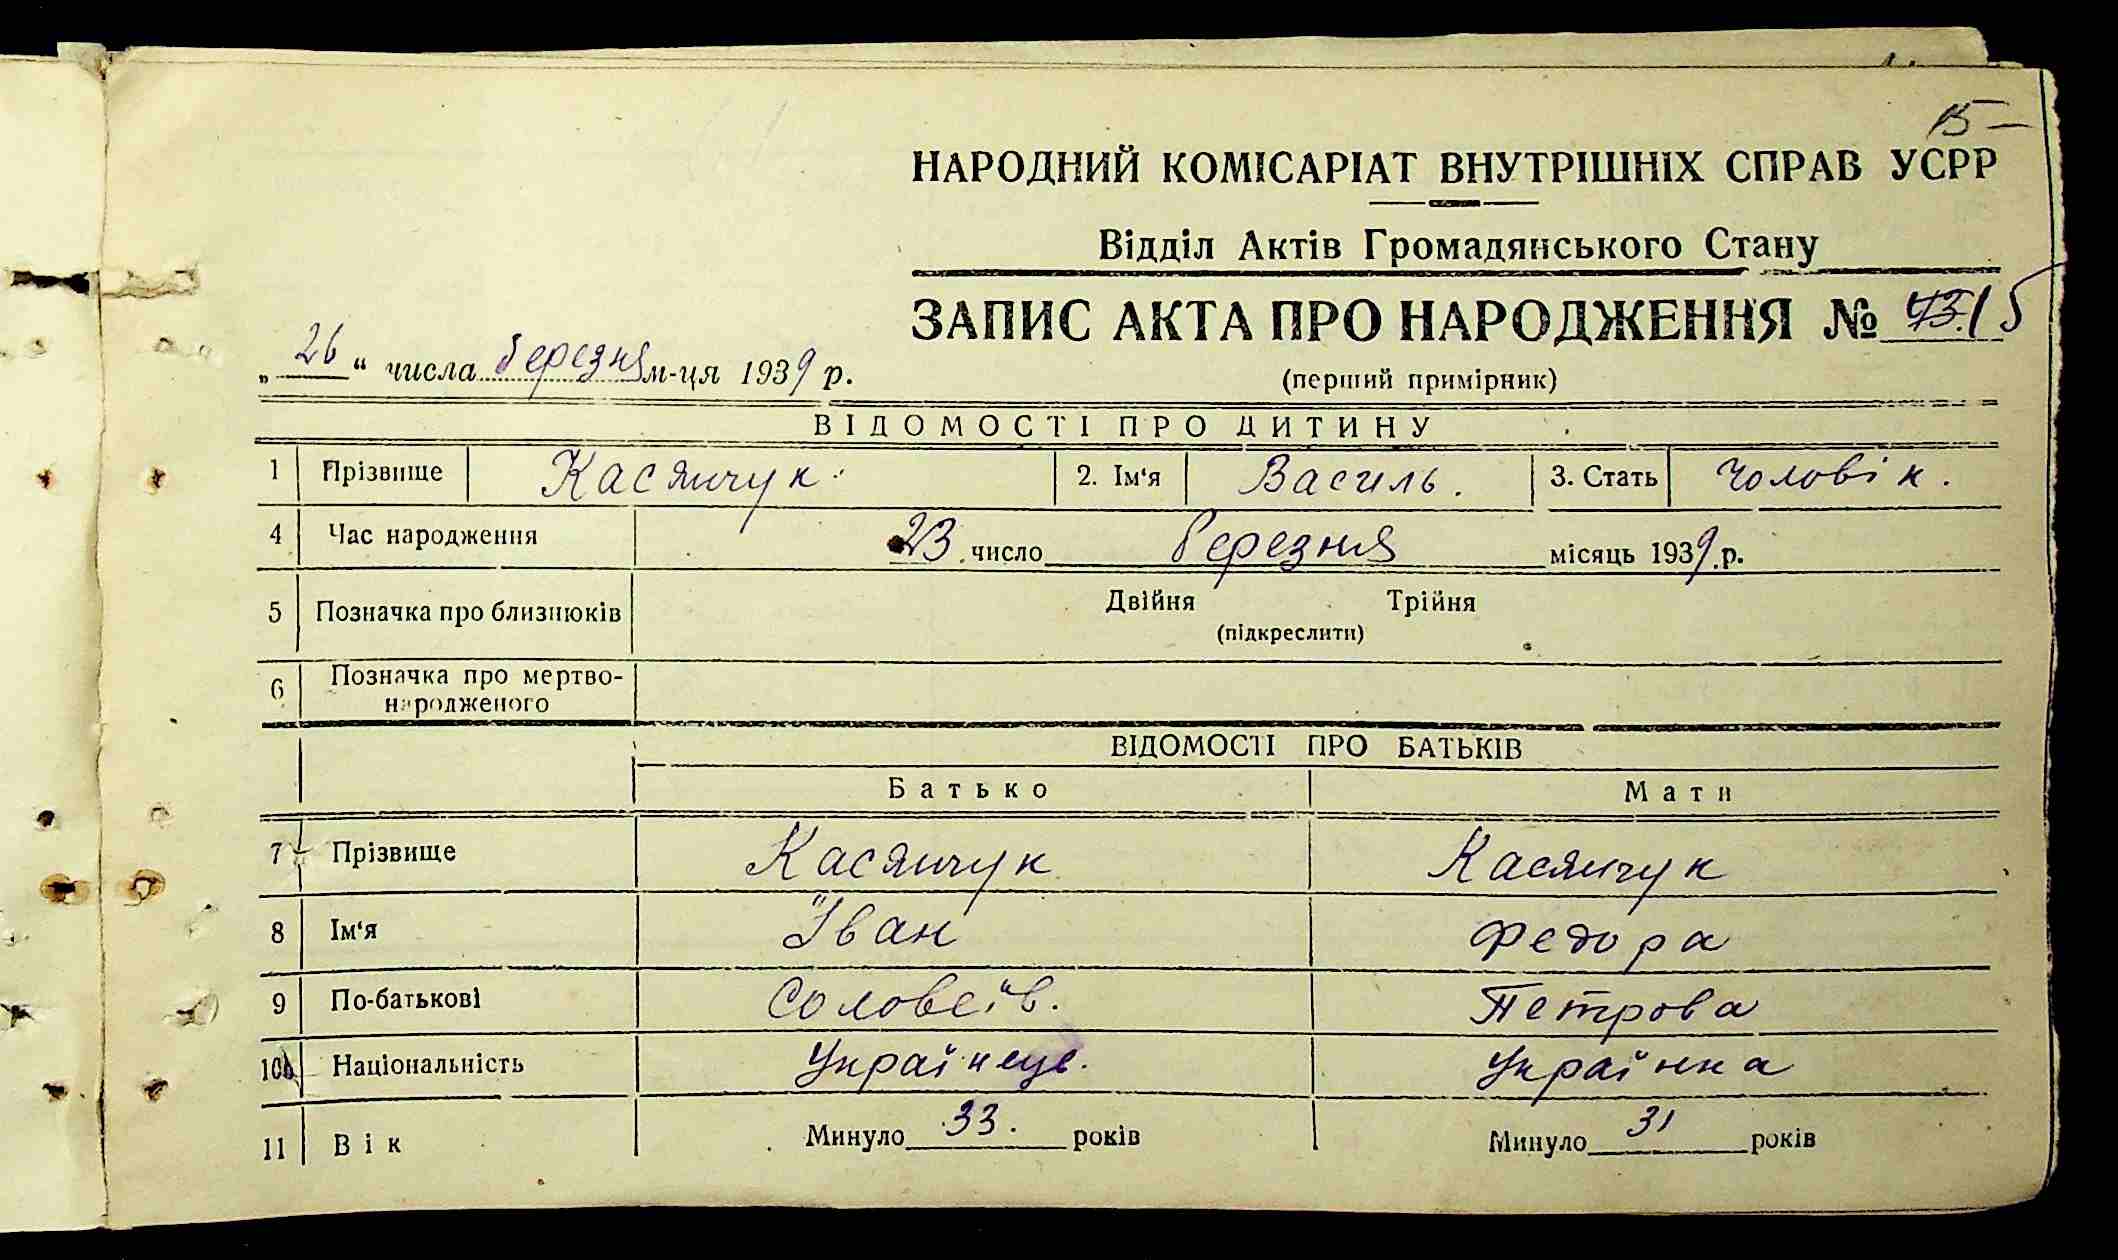 15 –
НАРОДНИЙ КОМІСАРІАТ ВНУТРІШНІХ СПРАВ УСРР
Відділ Актів Громадянського Стану
ЗАПИС АКТА ПРО НАРОДЖЕННЯ № 15
„26“ числа березня м-ця 1939 р.
(перший примірник)
ВІДОМОСТІ ПРО ДИТИНУ
1 Прізвище Касянчук 2. Ім‘я Василь. 3. Стать Чоловік.
4 Час народження 23 число березня місяць 1939 р.
5 Позначка про близнюків Двійня Трійня
(підкреслити)
6 Позначка про мертво-
народженого
ВІДОМОСТІ ПРО БАТЬКІВ
Батько Мати
7 Прізвище Касянчук Касянчук
8 Ім‘я Іван Федора
9 По-батькові Соловеїв. Петрова
10 Національність Українець. Українка
11 Вік Минуло 33. років Минуло 31 років